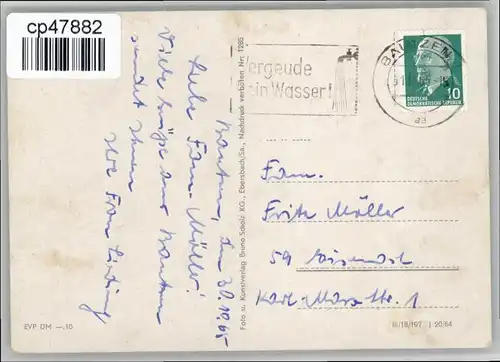 cp47882
Bautzen, den 30.10.65
Liebe Fam. Möller!
Viele Grüße aus Bautzen
sendet Ihnen
Ihre Frau
Foto u. Kunstverlag Bruno Scholz KG., Ebersbach/Sa., Nachdruck verboten Nr. 1285
ergeude
ein Wasser!
BAUTZEN
aa
DEUTSCHE
DEMOKRATISCHE REPUBLIK
10
Fam.
Fritz Möller
59 Eisenach
Karl-Marx-Str. 1
EVP DM —.10
III/18/197 I 20/64